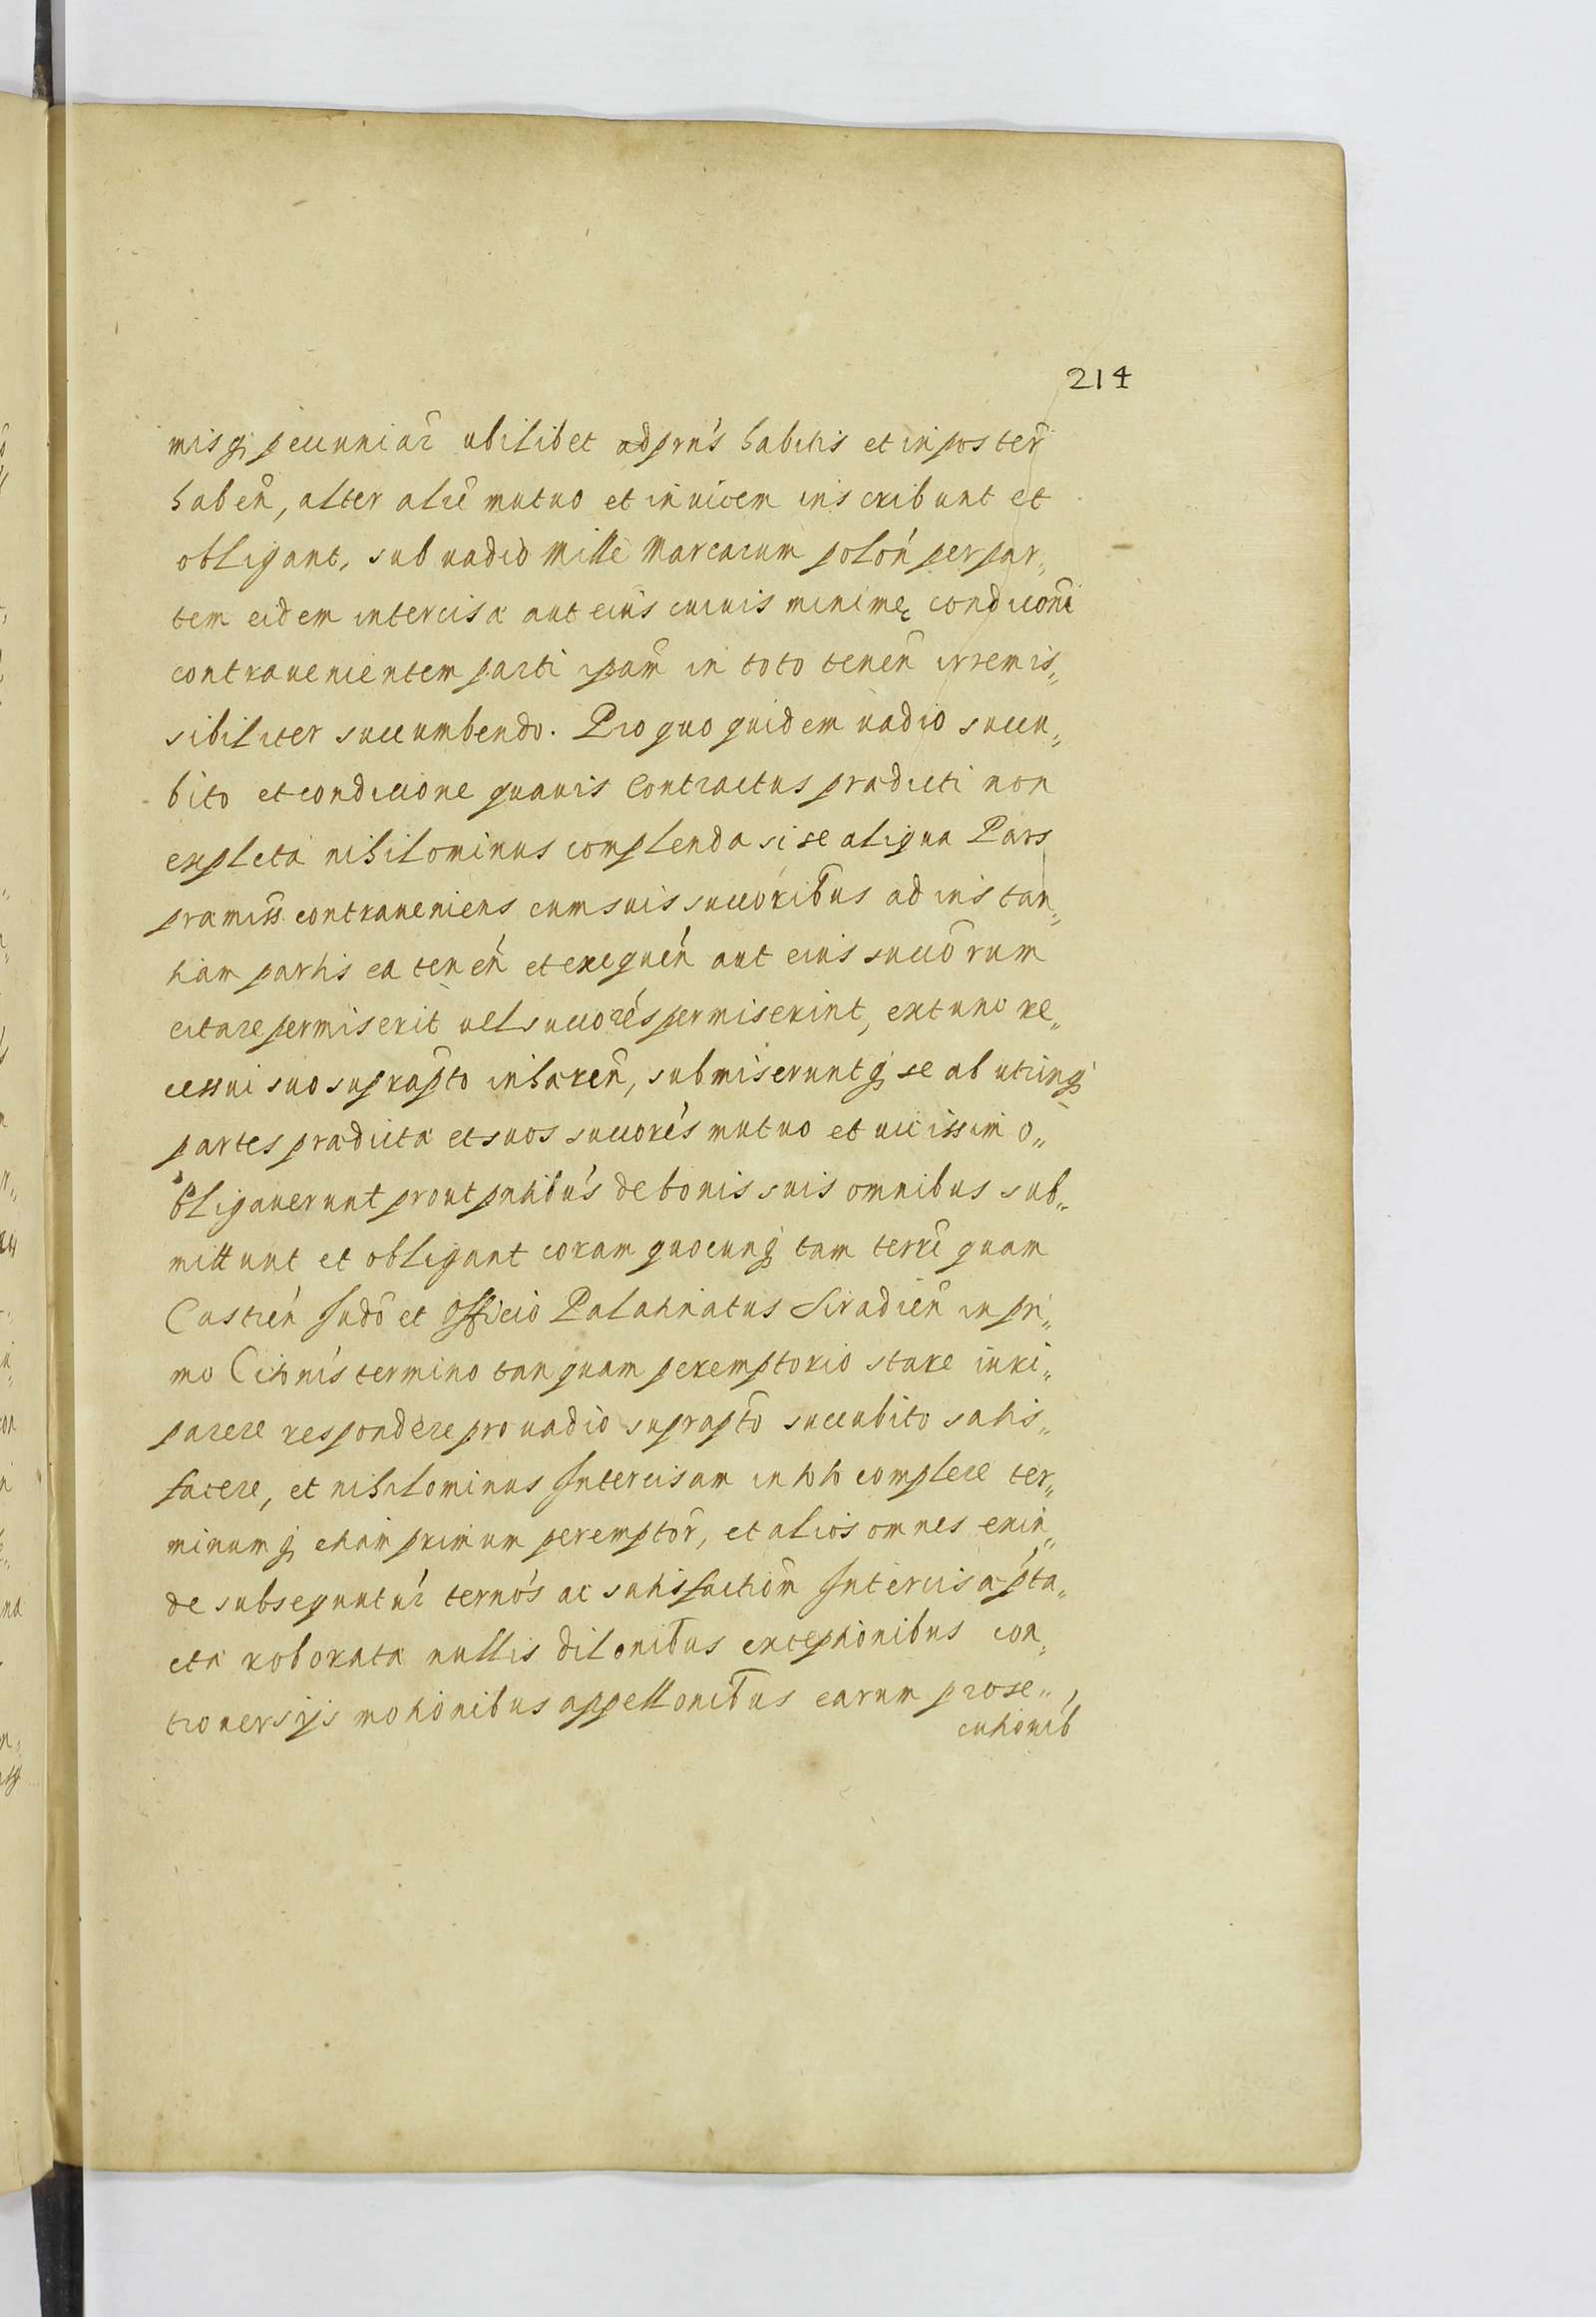 214
misq; pecuniar ubilibet ad prns habitis et in poster
haben, alter altē mutuo et inuicem inscribunt et
obligant, sub uadio Mille Marcarum polon per par„
tem eidem intercisæ aut eius cuiuis minimę condiconi
contrauenientem parti ipam in toto tenen irremis„
sibiliter succumbendo. Pro quo quidem uadio succu„
bito et condicione quauis Contractus prædicti non
expleta nihilominus complenda si se aliqua Pars
præmiss contraueniens cum suis succoribus ad instan„
tiam partis ea tenen et exequen aut eius succorum
citare permiserit uel succores permiserint, extunc re„
cessui suo suprapto inhæren, submiseruntq; se ab utrinq;
partes prædictæ et suos succores mutuo et uicissim o„
bligauerunt prout pntibus de bonis suis omnibus sub„
mittunt et obligant coram quocunq; tam terrē quam
Castren Judō et Officio Palatinatus Siradien in pri„
mo Citōnis termino tanquam peremptorio stare iuri„
parere respondere pro uadio suprapto succubito satis„
facere, et nihilominus Intercisam in toto complere ter„
minumq; etiam primum peremptor, et alios omnes exin„
de subsequuntur ternos ac satisfactiom Intercisæ pta„
ctæ roboratæ nullis dilonibus exceptionibus con„
trouersijs motionibus appellonibus earum prose„
cutionib